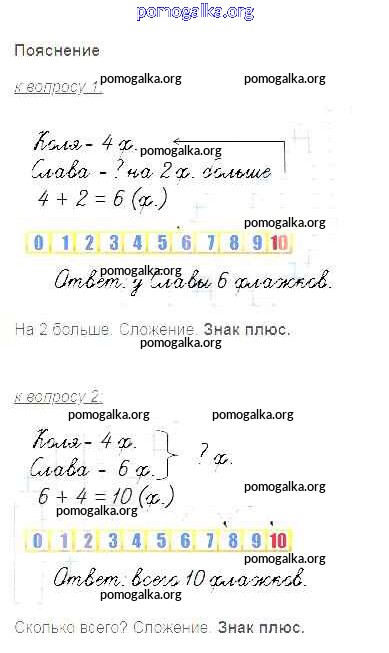 pomogalka.org
Пояснение
к вопросу 1:
pomogalka.org pomogalka.org
Коля - 4 ф.
pomogalka.org
Слава - ? на 2 ф. больше
4 + 2 = 6 (ф.)
pomogalka.org
0 1 2 3 4 5 6 7 8 9 10
pomogalka.org
Ответ: у Славы 6 флажков.
На 2 больше. Сложение. Знак плюс.
pomogalka.org
к вопросу 2:
pomogalka.org pomogalka.org
Коля - 4 ф.
Слава - 6 ф.
? ф.
6 + 4 = 10 (ф.)
pomogalka.org
0 1 2 3 4 5 6 7 8 9 10
pomogalka.org
Ответ: всего 10 флажков.
pomogalka.org
Сколько всего? Сложение. Знак плюс.